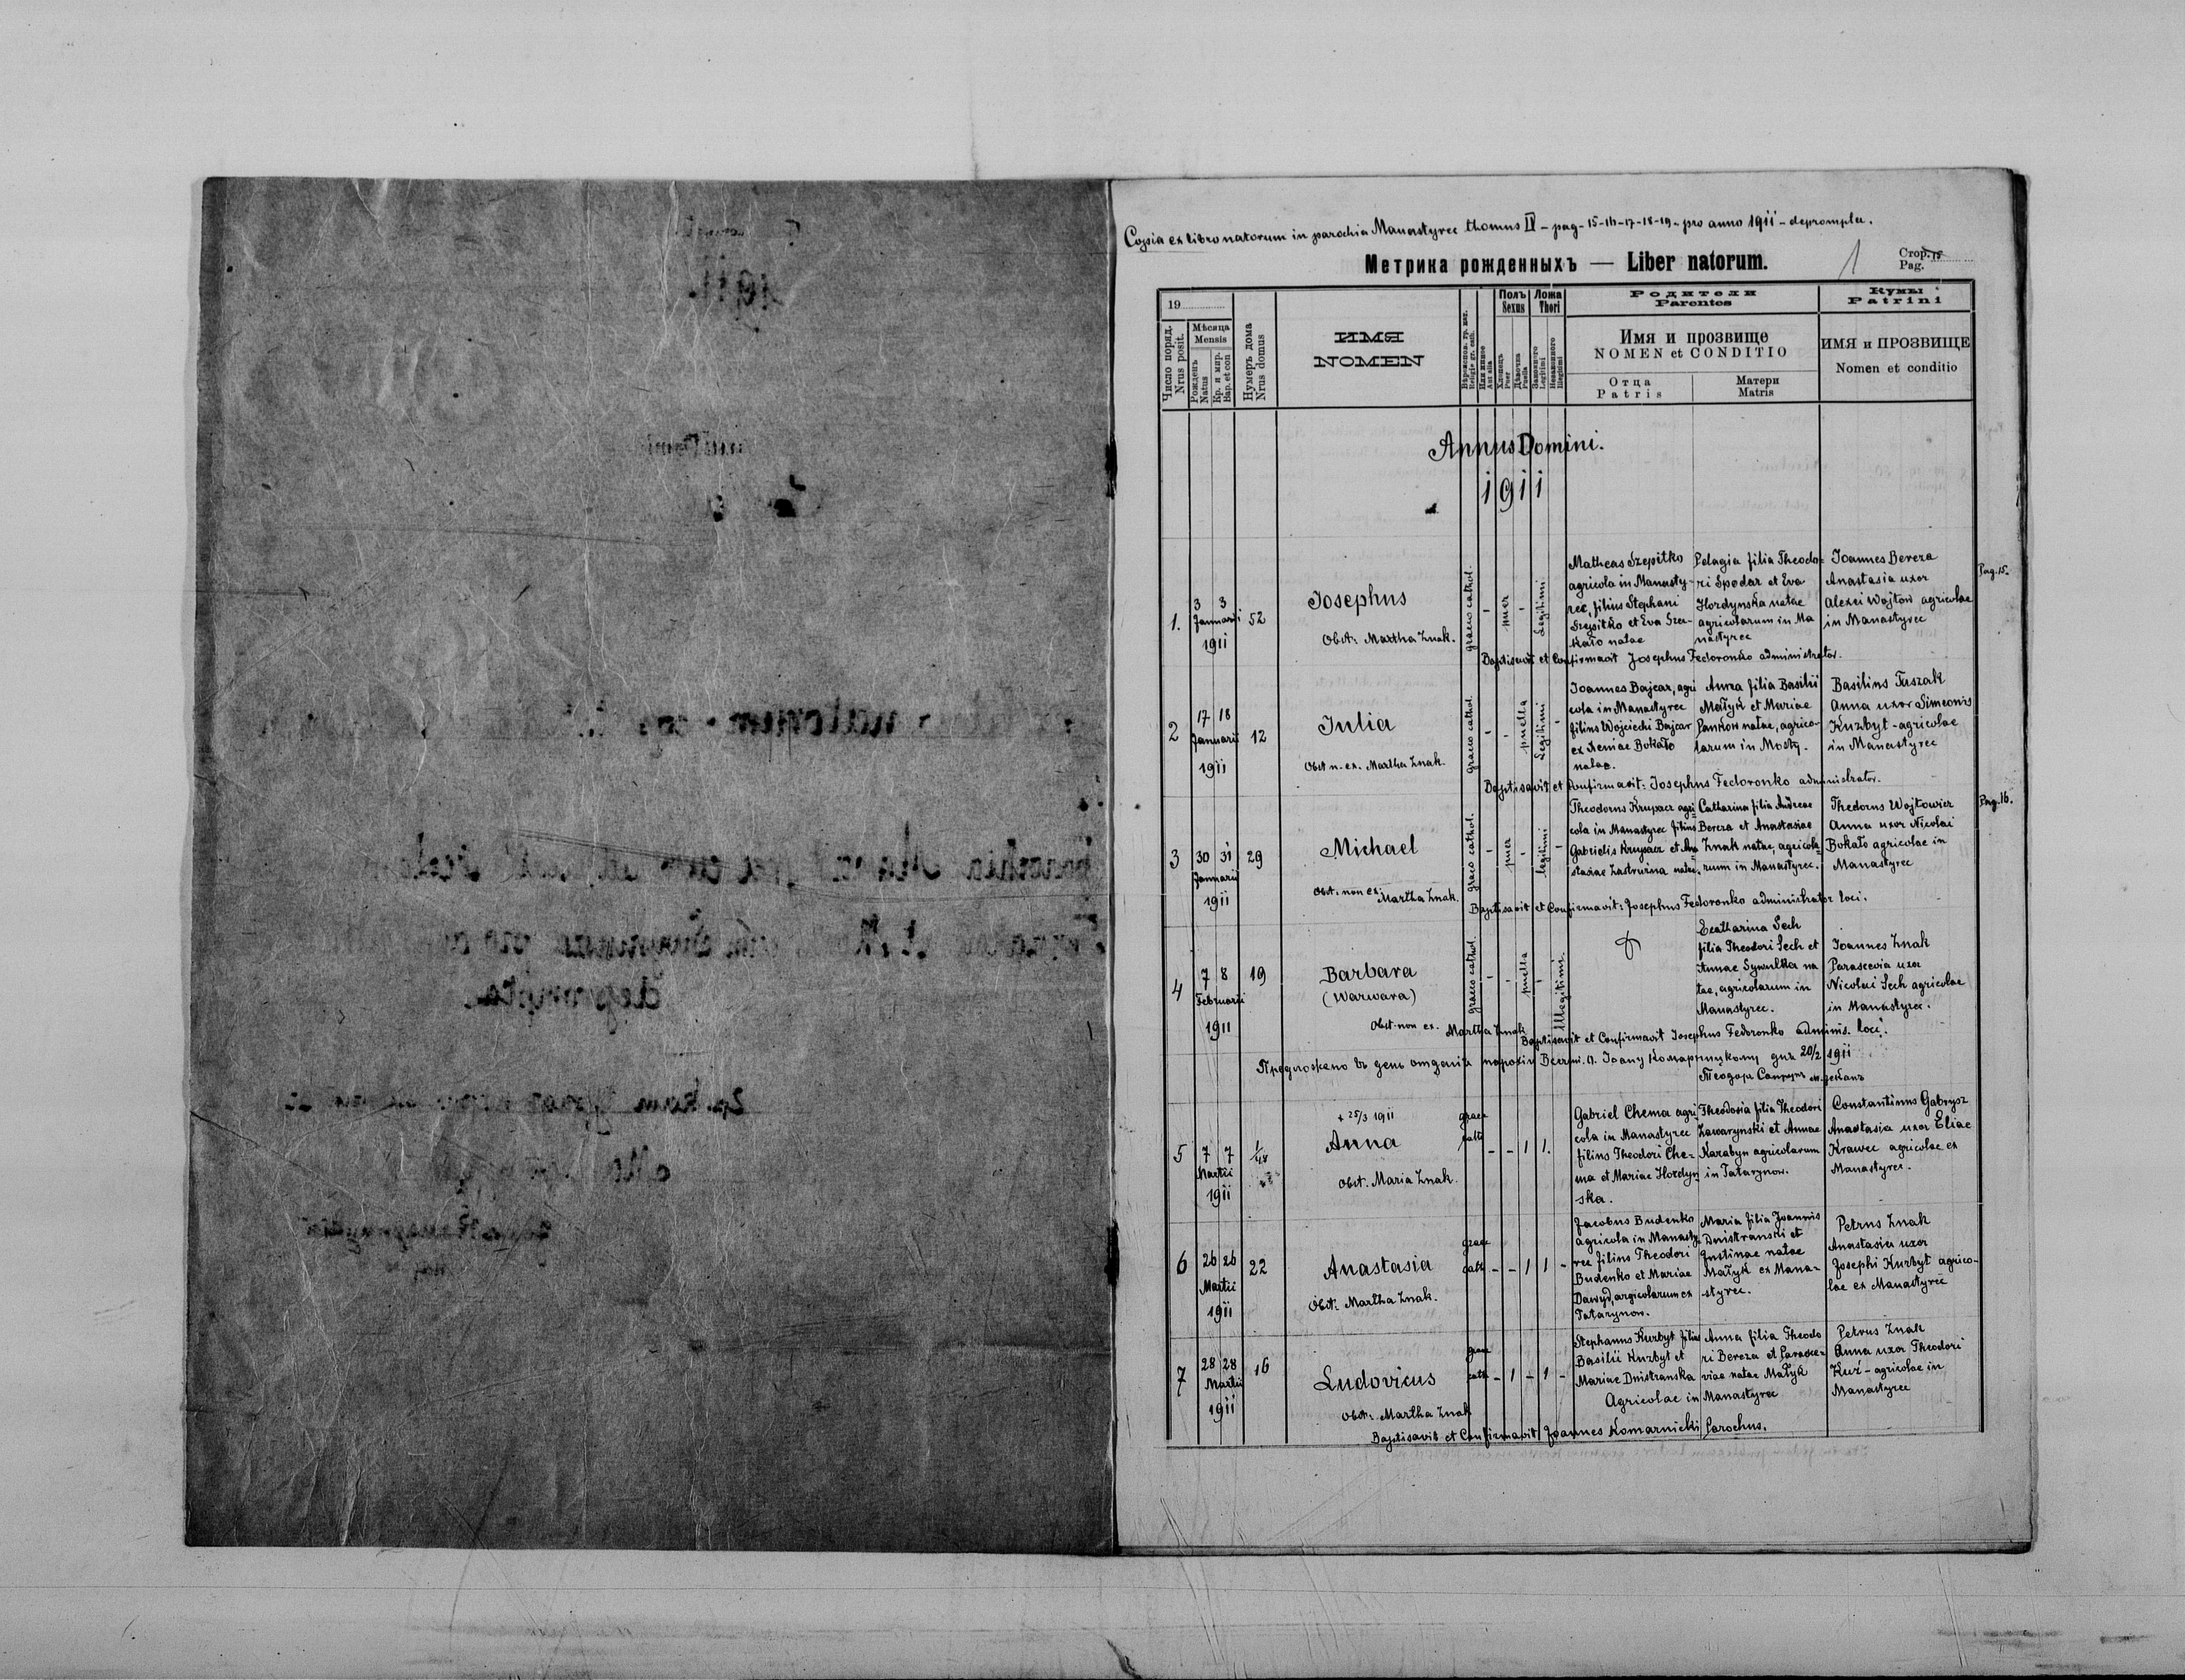 Copia ex libro natorum in parochia Manastyrec thomus IV - pag - 15-16-17-18-19 - pro anno 1911 - deprompta.
Метрика рожденныхъ — Liber natorum.
1
Стор. 15
Pag.
19
Число поряд.
Nrus posit.
Мѣсяца
Mensis
Рожденъ
Natus
Кр. и мир.
Bap. et con
Нумеръ дома
Nrus domus
ИМЯ
NOMEN
Religio gr. cath.
Или инное
Aut alia
Полъ
Sexus
Хлопецъ
Puer
Дѣвочка
Puella
Ложа
Thori
Законного
Legitimi
Незаконного
Illegitimi
Родители
Parentes
Имя и прозвище
NOMEN et CONDITIO
Отца
Patris
Матери
Matris
Кумы
Patrini
ИМЯ и ПРОЗВИЩЕ
Nomen et conditio
Annus Domini.
1911
Pag. 15.
1.
3 3
Januarii
1911
52
Josephus
Obst: Martha Znak.
graeco cathol.
-
puer
-
Legitimi
Matheas Szepitko
agricola in Manasty-
rec, filius Stephani
Szepitko et Eva Sze-
kało natae
Pelagia filia Theodo-
ri Spodar et Eva
Hordynska natae
agricolarum in Ma
nastyrec
Joannes Bereza
Anastasia uxor
Alexei Wojtow agricolae
in Manastyrec
Baptisavit et Confirmavit Josephus Fedoronko administrator.
2
17 18
Januarii
1911
12
Julia
Obst n. ex. Martha Znak.
graeco cathol.
-
-
puella
Legitimi
-
Joannes Bajcar, agri
cola in Manastyrec
filius Wojciechi Bajcar
ex Xeniae Bokało
natae.
Anna filia Basilii
Małyk et Mariae
Pankow natae, agrico-
larum in Mosty.
Basilius Tuszak
Anna uxor Simeonis
Kurzbyt - agricolae
in Manastyrec
Baptisavit et Confirmavit: Josephus Fedoronko administrator.
Pag. 16.
3
30 31
Januarii
1911
29
Michael
Obst. non ex. Martha Znak.
graeco cathol.
-
puer
-
legitimi
-
Theodorus Krupacz agri
cola in Manastyrec filius
Gabrielis Krupacz et Ana
stasiae Zastruzna natae.
Catharina filia Andreae
Bereza et Anastasiae
Znak natae, agricola-
rum in Manastyrec.
Thedorus Wojtowicz
Anna uxor Nicolai
Bokało agricolae in
Manastyrec
Baptisavit et Confirmavit: Josephus Fedoronko administrator loci.
4
7 8
Februarii
1911
19
Barbara
(Warwara)
Obst. non ex. Martha Znak
graeco cathol.
-
-
puella
-
Illegitimi.
Ecatharina Sech
filia Theodori Sech et
Annae Sywulka na
tae, agricolarum in
Manastyrec.
Joannes Znak
Parascevia uxor
Nicolai Sech agricolae
in Manastyrec.
Baptisavit et Confirmavit Josephus Fedoronko adminis. loci.
Предложено въ день отданія парохіи Всечт. о. Іоану Комарницкому дня 20/2 1911
Теодоръ м. деканъ
5
7 7
Martii
1911
+ 25/3 1911
Anna
Obst. Maria Znak.
graec
cath
- - 1 1.
Gabriel Chema agri-
cola in Manastyrec
filius Theodori Che-
ma et Mariae Hordyn-
ska.
Theodosia filia Theodori
Zawarynski et Annae
Karabyn agricolarum
in Tatarynow.
Constantinus Gabrysz
Anastasia uxor Eliae
Krawec agricolae ex
Manastyrec.
6
26 26
Martii
1911
22
Anastasia
Obst: Martha Znak.
graec
cath - - 1 1 -
Jacobus Budenko
agricola in Manasty-
rec filius Theodori
Budenko et Mariae
Dawyd, argicolarum ex
Tatarynow.
Maria filia Joannis
Dnistranski et
Justinae natae
Małyk ex Mana-
styrec.
Petrus Znak
Anastasia uxor
Josephi Kurzbyt agrico-
lae ex Manastyrec
7
28 28
Martii
1911
16
Ludovicus
Obst: Martha Znak
graec
cath - 1 - 1 -
Stephanus Kurzbyt filius
Basilii Kurzbyt et
Mariae Dnistranska
Anna filia Theodo
ri Bereza et Parasce-
viae natae Małyk
Agricolae in Manastyrec
Petrus Znak
Anna uxor Theodori
Kuź - agricolae in
Manastyrec
Baptisavit et Confirmavit Joannes Komarnicki Parochus.